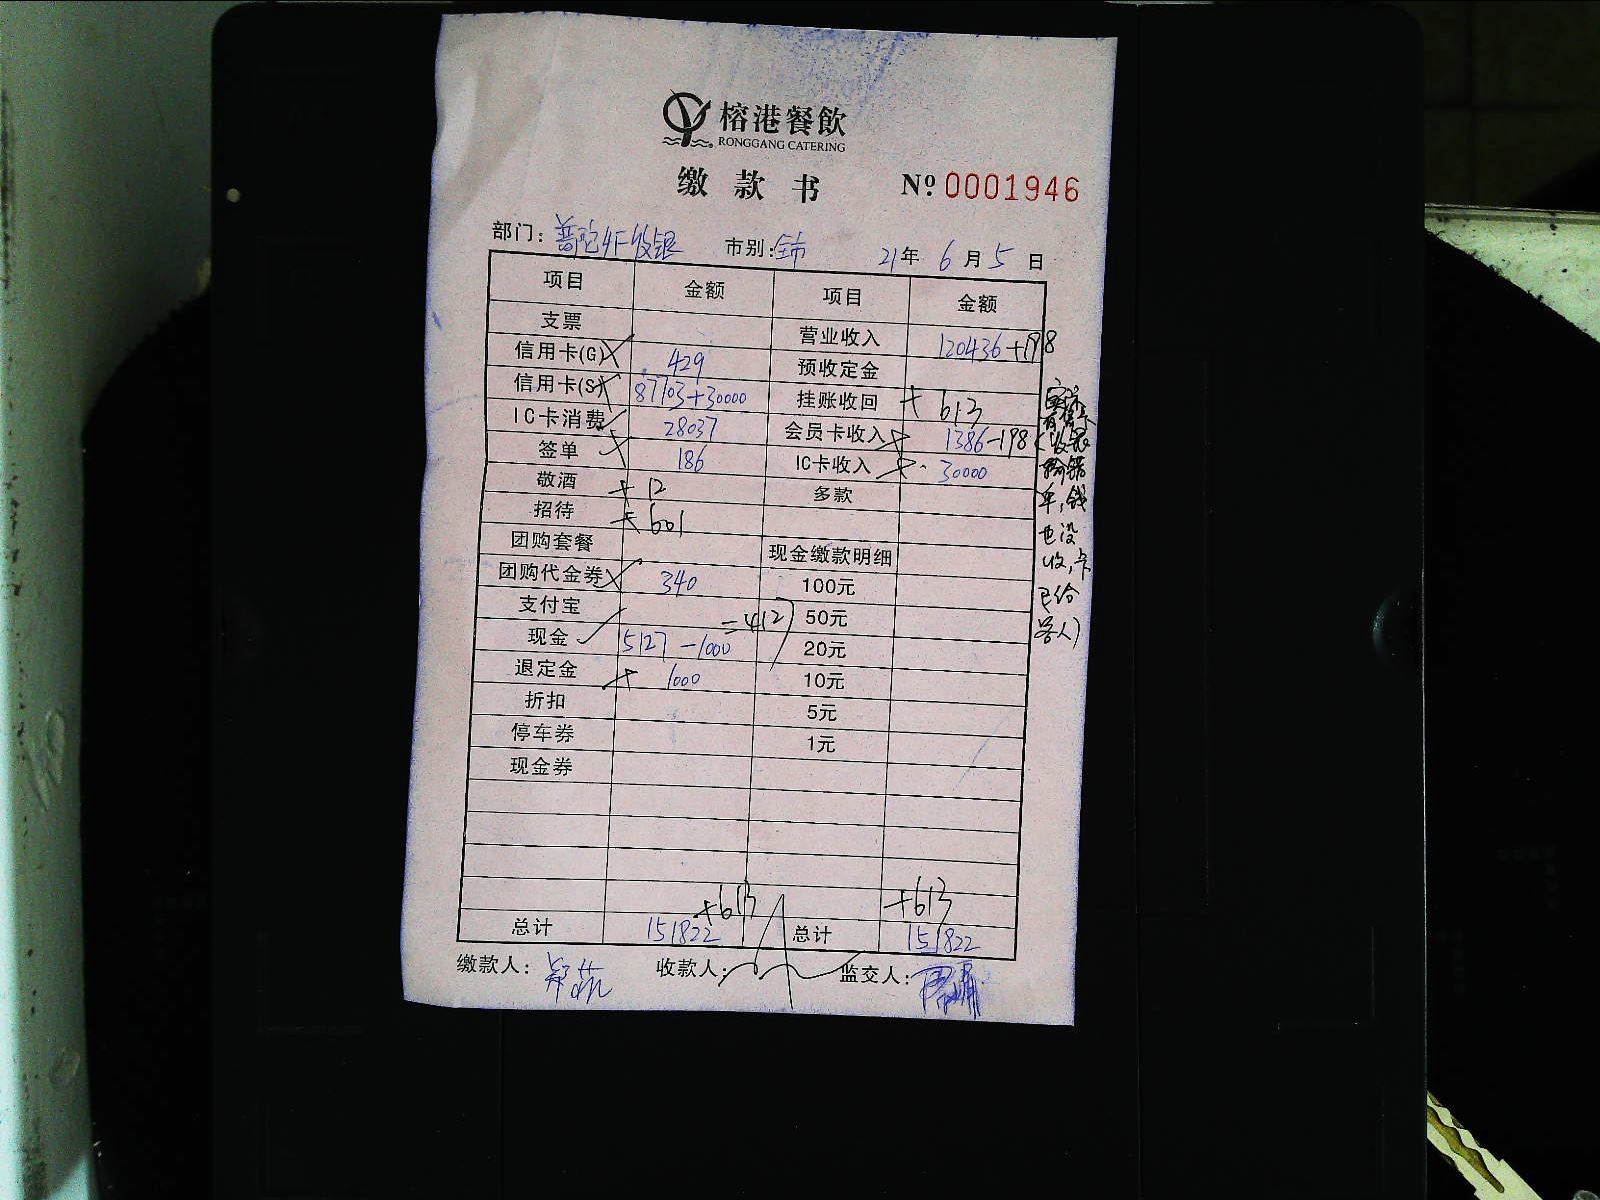 榕港餐飲
RONGGANG CATERING
缴款书 № 0001946
部门: 普陀4F收银 市别: 全市 21年 6月 5日
项目 金额 项目 金额
支票 营业收入 120436+198
信用卡(G) 429 预收定金
信用卡(S) 87703+30000 挂账收回 + 613
IC卡消费 28037 会员卡收入 1386-198
签单 186 IC卡收入 30000
敬酒 + 12 多款
招待 + 601
团购套餐 现金缴款明细
团购代金券 340 100元
支付宝 50元
现金 5127-1000 =4127 20元
退定金 1000 10元
折扣 5元
停车券 1元
现金券
+613 +613
总计 151822 总计 151822
收银
输错
单,钱
也没
收,卡
已给
客人)
缴款人: 收款人: 监交人: